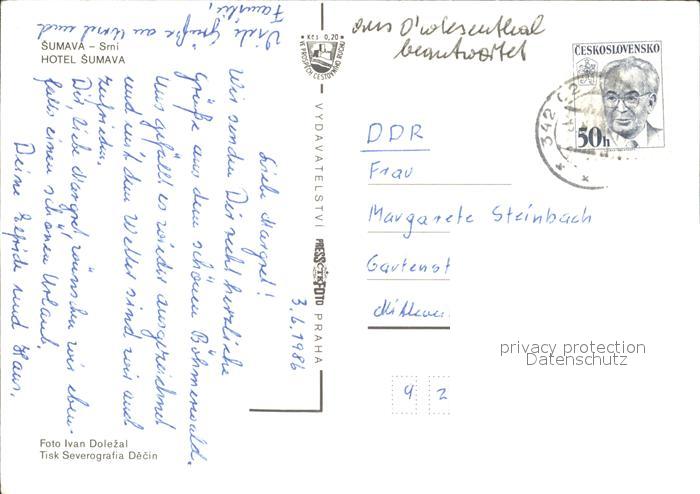 ŠUMAVA – Srní
HOTEL ŠUMAVA
3.6.1986
Liebe Margret!
Wir senden Dir recht herzliche
Grüße aus dem schönen Böhmerwald.
Uns gefällt es wieder ausgezeichnet
und mit dem Wetter sind wir auch
zufrieden.
Dir, liebe Margret wünschen wir eben-
falls einen schönen Urlaub.
Deine und Hans.
Viele Grüße an Ursel und
Familie!
Foto Ivan Doležal
Tisk Severografia Děčín
Kčs 0,20
VE PROSPĚCH CESTOVNÍHO RUCHU
VYDAVATELSTVÍ PRESSFOTO PRAHA
ČTK
aus
beantwortet
ČESKOSLOVENSKO
50h
342 02
DDR
Frau
Margarete Steinbach
Gartenst
9 2
privacy protection
Datenschutz